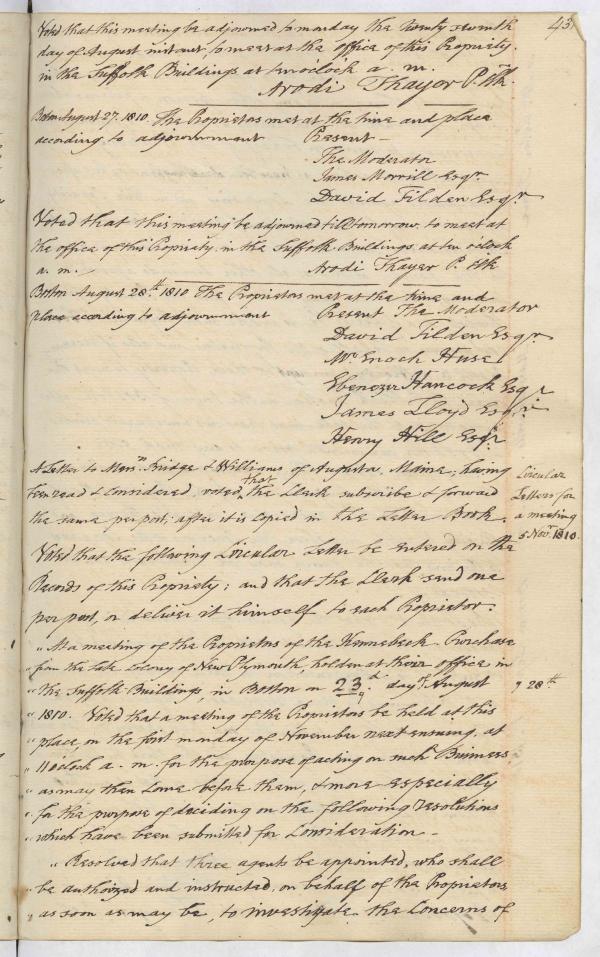 43
Voted that this meeting be adjourned to monday the twenty seventh
day of August instant, to meet at the office of this Propriety.
in the Suffolk Buildings at ten o'clock a. m.
Arodi Thayer P. Clk.
Boston August 27. 1810. The Proprietors met at the time and place
according to adjournment Present -
The Moderator
James Morrill Esqr.
David Tilden Esqr.
Voted that this meeting be adjourned till tomorrow, to meet at
the office of this Propriety in the Suffolk Buildings at ten o'clock
a. m. Arodi Thayer P. Clk
Boston August 28th. 1810 The Proprietors met at the time and
place according to adjournment Present The Moderator
David Tilden Esqr.
Mr. Enoch Huse
Ebenezer Hancock Esqr
James Lloyd Esqr.
Henry Hill Esqr
A Letter to Messrs. Bridge & Williams of Augusta, Maine, having
been read & considered, voted, that the Clerk subscribe & forward
the same per post; after it is copied in the Letter Book.
Circular
Letters for
a meeting
5 Novr. 1810.
Voted that the following Circular Letter be entered on the
Records of this Propriety; and that the Clerk send one
per post, or deliver it himself to each Proprietor.
"At a meeting of the Proprietors of the Kennebeck Purchase
"from the late Colony of New Plymouth, holden at their office in
"the Suffolk Buildings, in Boston on 23d. day of August
? 28th
"1810. Voted that a meeting of the Proprietors be held at this
"place, on the first monday of November next ensuing, at
"11 oClock a. m. for the purpose of acting on such Business
"as may then come before them, & more especially
"for the purpose of deciding on the following resolutions
"which have been submitted for Consideration -
"Resolved that three agents be appointed, who shall
"be authorized and instructed, on behalf of the Proprietors
"as soon as may be, to investigate the Concerns of